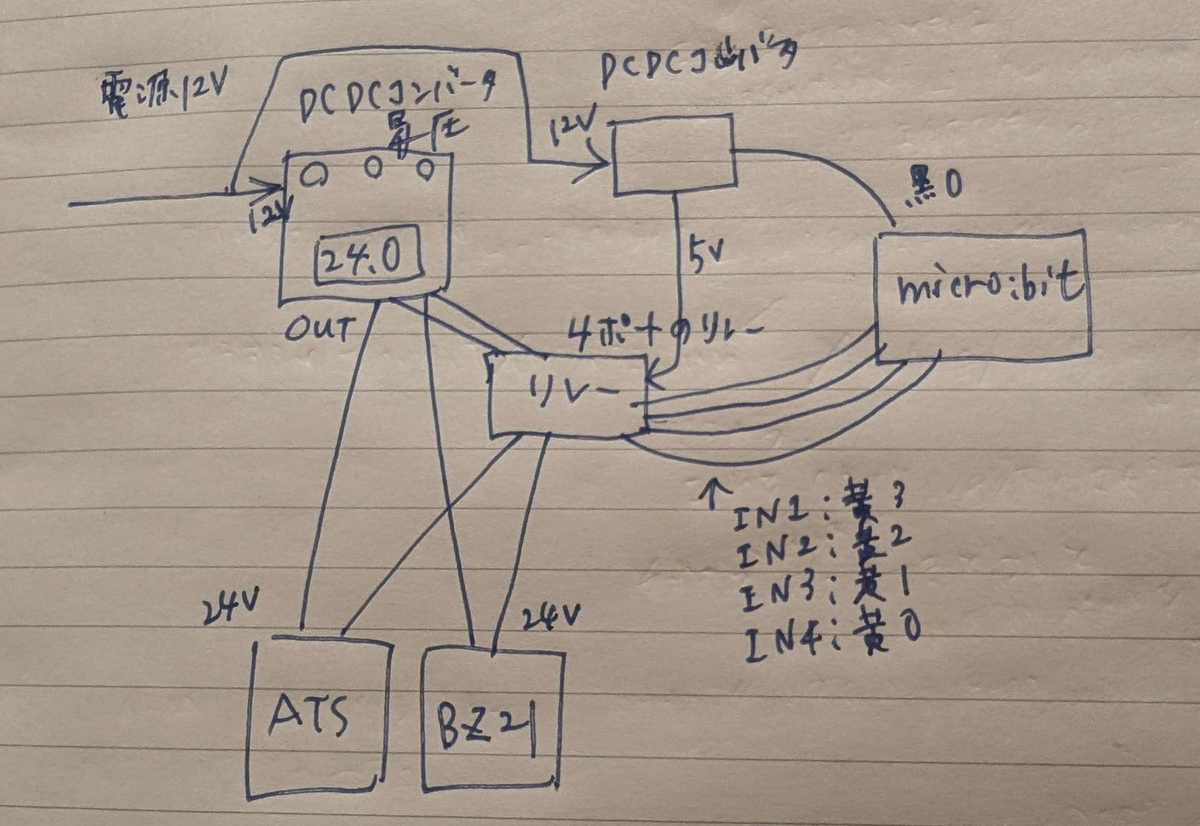 電源12V
DCDCコンバータ
昇圧
12V
24.0
OUT
DCDCコンバータ
12V
5V
黒0
micro:bit
4ポートのリレー
リレー
↑
IN1:黄3
IN2:黄2
IN3:黄1
IN4:黄0
24V
24V
ATS
BZ21